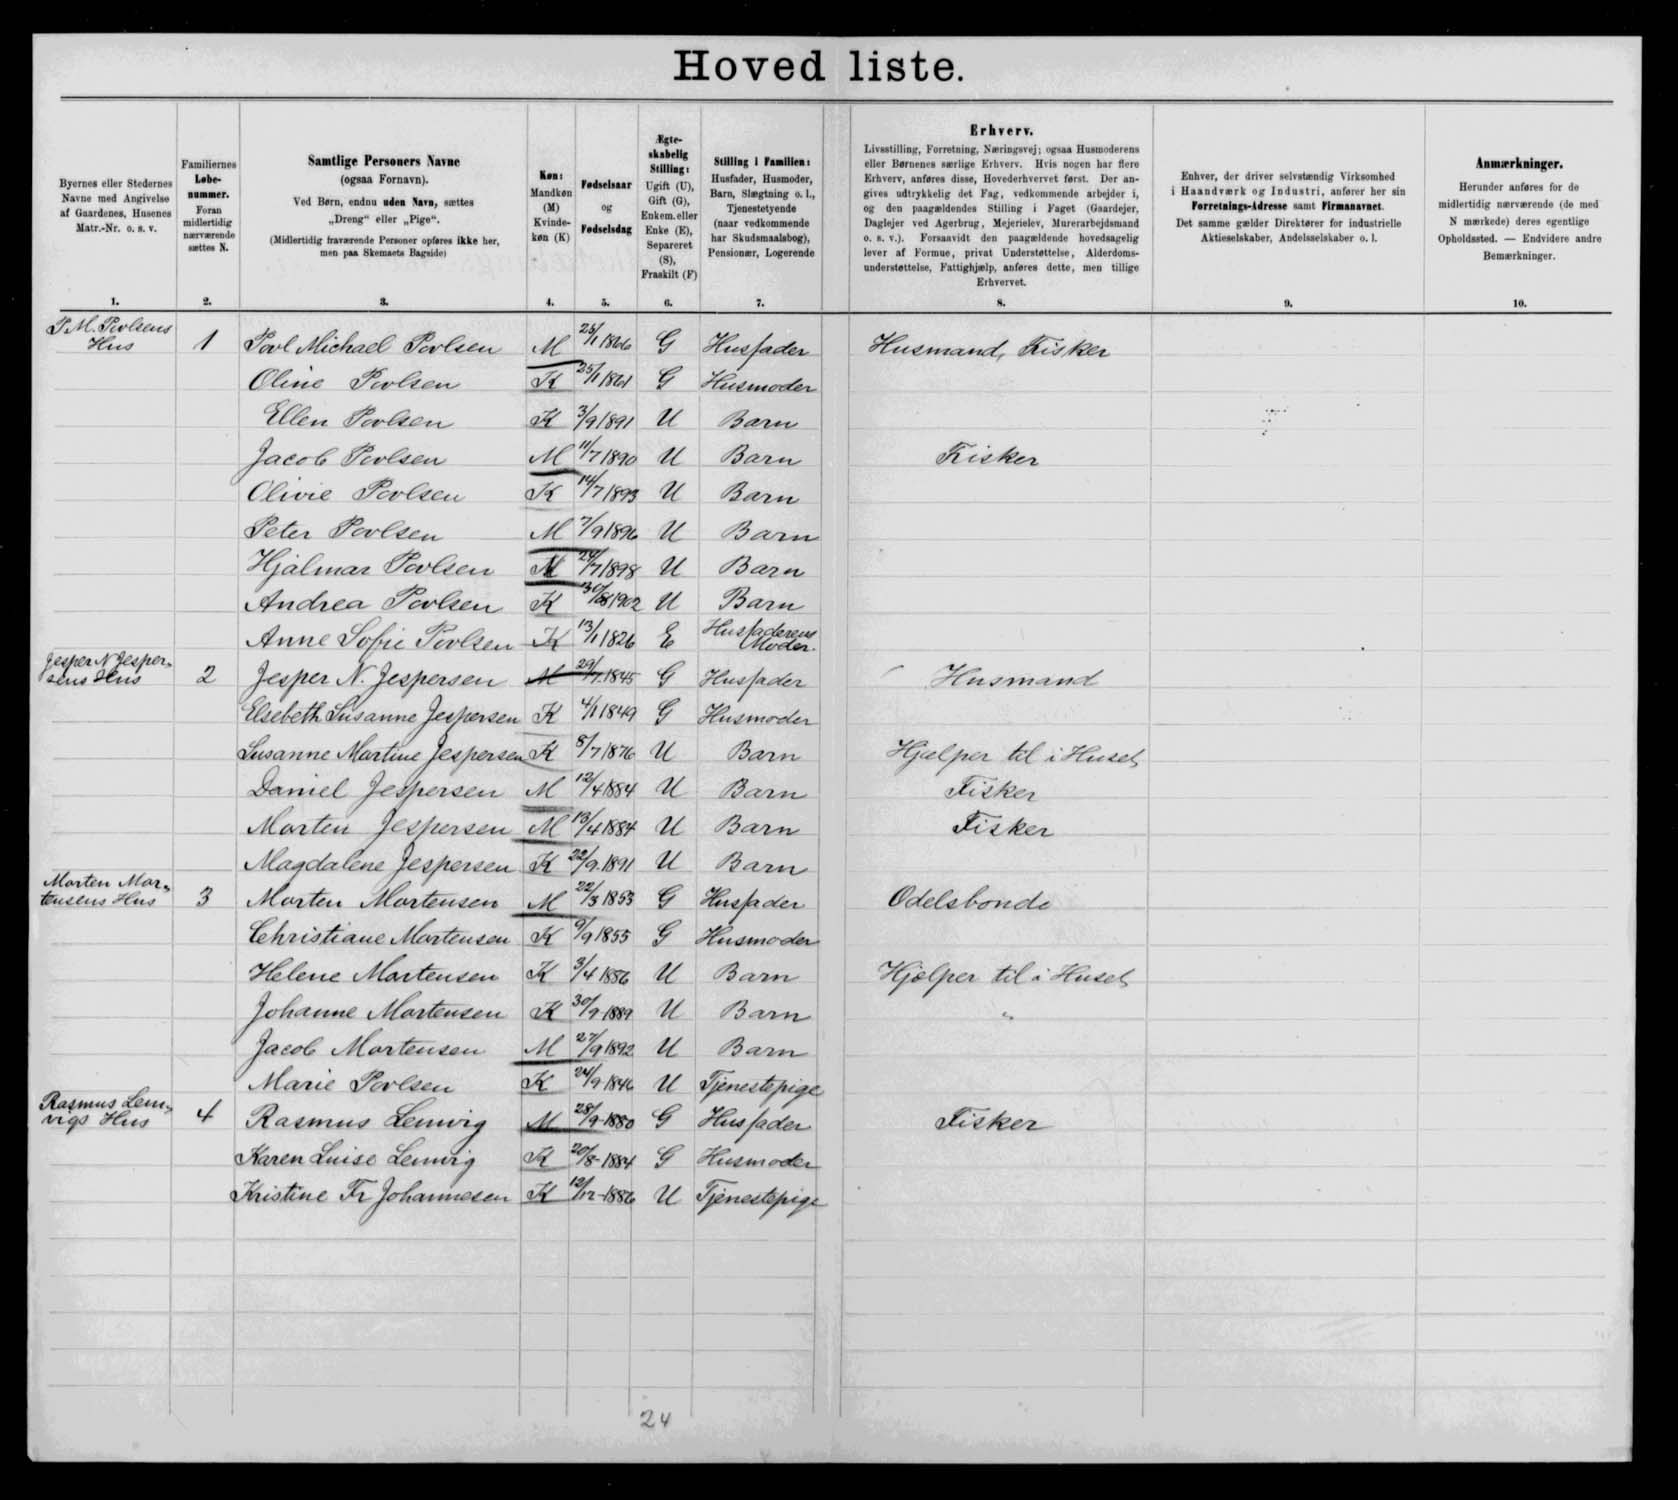 Hoved liste.
Byernes eller Stedernes
Navne med Angivelse
af Gaardenes, Husenes
Matr.-Nr. o. s. v.
1.
Familiernes
Løbe-
nummer.
Foran
midlertidig
nærværende
sættes N.
2.
Samtlige Personers Navne
(ogsaa Fornavn).
Ved Børn, endnu uden Navn, sættes
„Dreng“ eller „Pige“.
(Midlertidig fraværende Personer opføres ikke her,
men paa Skemaets Bagside)
3.
Køn:
Mandkøn
(M)
Kvinde-
køn (K)
4.
Fødselsaar
og
Fødselsdag
5.
Ægte-
skabelig
Stilling:
Ugift (U),
Gift (G),
Enkem. eller
Enke (E),
Separeret
(S),
Fraskilt (F)
6.
Stilling i Familien:
Husfader, Husmoder,
Barn, Slægtning o. l.,
Tjenestetyende
(naar vedkommende
har Skudsmaalsbog),
Pensionær, Logerende
7.
Erhverv.
Livsstilling, Forretning, Næringsvej; ogsaa Husmoderens
eller Børnenes særlige Erhverv. Hvis nogen har flere
Erhverv, anføres disse, Hovederhvervet først. Der an-
gives udtrykkelig det Fag, vedkommende arbejder i,
og den paagældendes Stilling i Faget (Gaardejer,
Daglejer ved Agerbrug, Mejerielev, Murerarbejdsmand
o. s. v.). Forsaavidt den paagældende hovedsagelig
lever af Formue, privat Understøttelse, Alderdoms-
understøttelse, Fattighjælp, anføres dette, men tillige
Erhvervet.
8.
Enhver, der driver selvstændig Virksomhed
i Haandværk og Industri, anfører her sin
Forretnings-Adresse samt Firmanavnet.
Det samme gælder Direktører for industrielle
Aktieselskaber, Andelsselskaber o. l.
9.
Anmærkninger.
Herunder anføres for de
midlertidig nærværende (de med
N mærkede) deres egentlige
Opholdssted. — Endvidere andre
Bemærkninger.
10.
P. M. Povlsens
Hus 1 Povl Michael Povlsen M 25/1 1866 G Husfader Husmand, Fisker
Oline Povlsen K 25/1 1861 G Husmoder
Ellen Povlsen K 3/9 1891 U Barn
Jacob Povlsen M 11/7 1890 U Barn Fisker
Olivie Povlsen K 14/7 1893 U Barn
Peter Povlsen M 7/9 1896 U Barn
Hjalmar Povlsen M /7 1898 U Barn
Andrea Povlsen K 30/8 1902 U Barn
Anne Sofie Povlsen K 13/1 1826 E Husfaderens
Moder.
Jesper N Jesper-
sens Hus 2 Jesper N. Jespersen M 29/7 1845 G Husfader Husmand
Elsebeth Susanne Jespersen K 4/1 1849 G Husmoder
Susanne Martine Jespersen K 8/7 1876 U Barn Hjælper til i Huset
Daniel Jespersen M 12/4 1884 U Barn Fisker
Morten Jespersen M 13/4 1884 U Barn Fisker
Magdalene Jespersen K 22/9 1891 U Barn
Morten Mor-
tensens Hus 3 Morten Mortensen M 22/3 1853 G Husfader Odelsbonde
Christiane Mortensen K 9/9 1855 G Husmoder
Helene Mortensen K 3/4 1886 U Barn Hjælper til i Huset
Johanne Mortensen K 30/9 1889 U Barn "
Jacob Mortensen M 27/9 1892 U Barn
Marie Povlsen K 24/9 1846 U Tjenestepige
Rasmus Lem-
vigs Hus 4 Rasmus Lemvig M 28/9-1880 G Husfader Fisker
Karen Luise Lemvig K 20/8-1884 G Husmoder
Kristine Fr Johannesen K 12/12-1886 U Tjenestepige
24